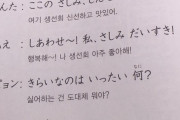 んた：ここの さしみ、しんせ
여기 생선회 신선하고 맛있어.
え：しあわせ〜！私、さしみ だいすき！
행복해〜! 나 생선회 아주 좋아해!
ョン：きらいなのは いったい 何？
싫어하는 건 도대체 뭐야?